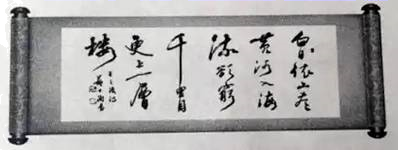 白日依山盡
黄河入海
流欲窮
千里目
更上一層
樓